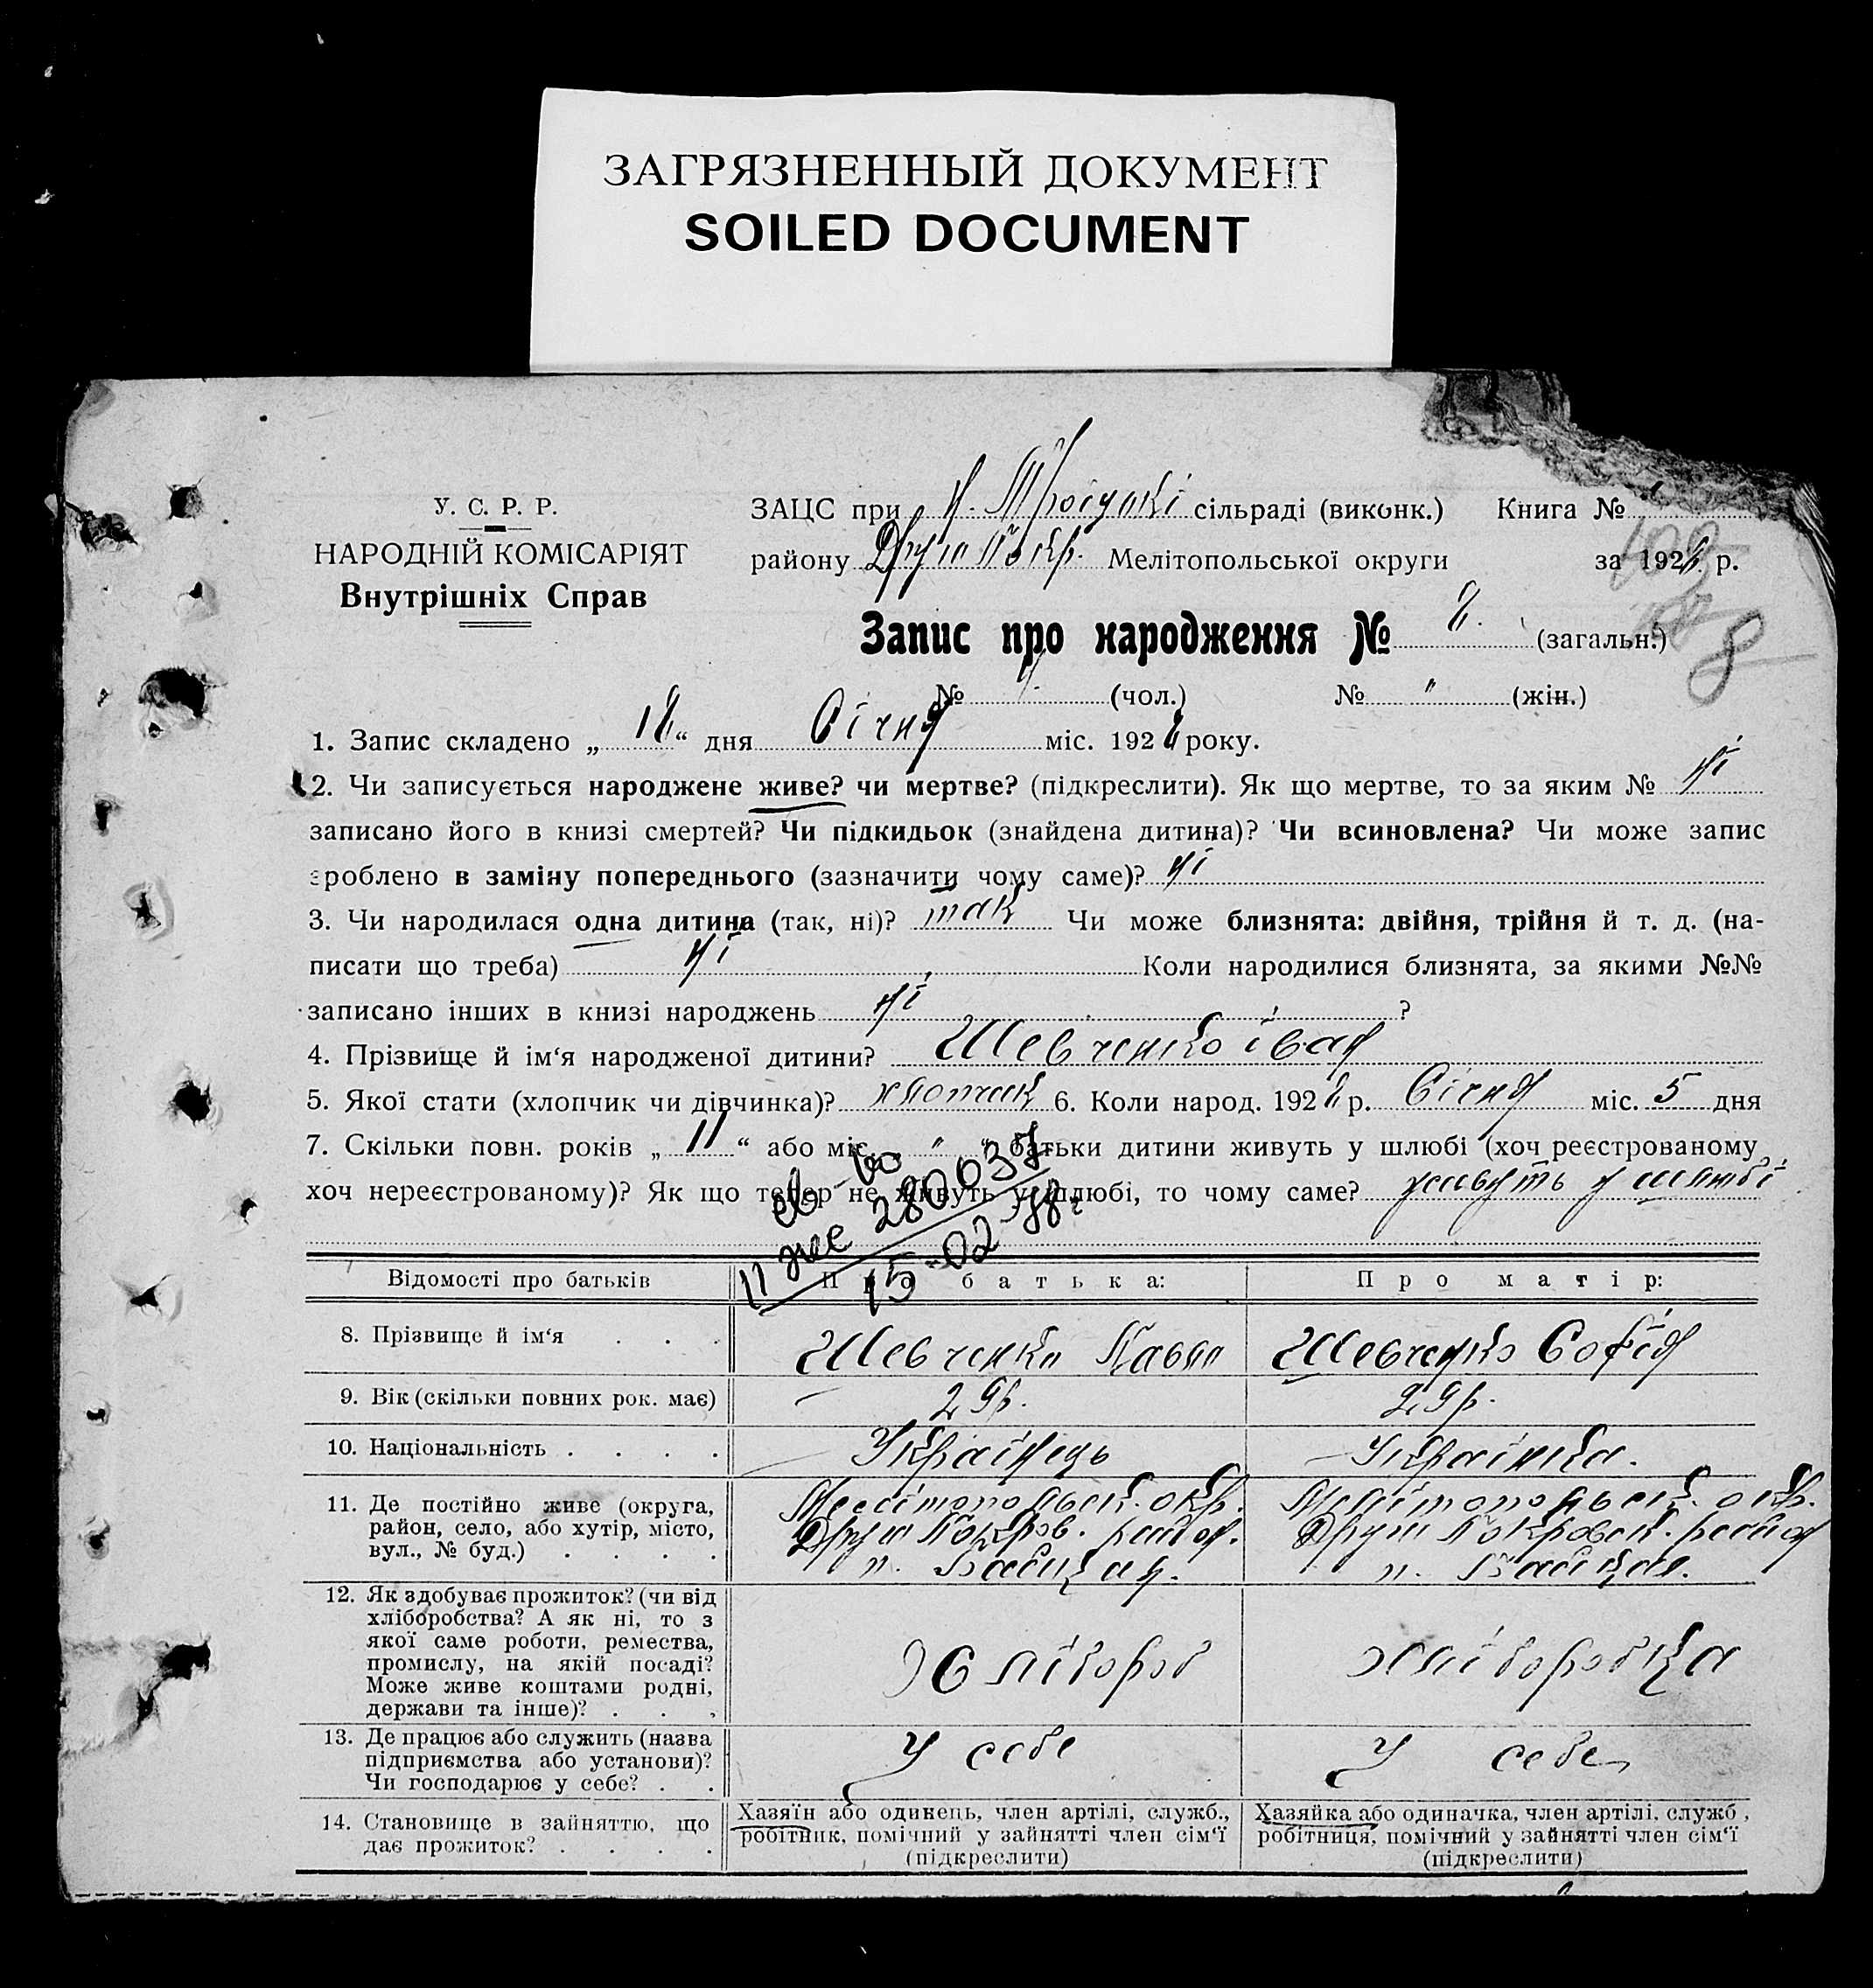 ЗАГРЯЗНЕННЫЙ ДОКУМЕНТ
SOILED DOCUMENT
У. С. Р. Р.
НАРОДНІЙ КОМІСАРІЯТ
Внутрішніх Справ
ЗАЦС при Н. Троіцькі сільраді (виконк.) Книга №
району Друш Покр. Мелітопольської округи за 192 р.
Запис про народження № (загальн.)
8
№ (чол.) № " (жін.)
1. Запис складено „ “ дня Січня міс. 192 року.
2. Чи записується народжене живе? чи мертве? (підкреслити). Як що мертве, то за яким № ні
записано його в книзі смертей? Чи підкидьок (знайдена дитина)? Чи всиновлена? Чи може запис
зроблено в заміну попереднього (зазначити чому саме)? ні
3. Чи народилася одна дитина (так, ні)? так Чи може близнята: двійня, трійня й т. д. (на-
писати що треба) ні Коли народилися близнята, за якими №№
записано інших в книзі народжень ні ?
4. Прізвище й ім‘я народженої дитини? Шевченко Іван
5. Якої стати (хлопчик чи дівчинка)? хлопчик 6. Коли народ. 192 р. Січня міс. 5 дня
7. Скільки повн. років „ 11 “ або міс. „ " “ батьки дитини живуть у шлюбі (хоч реєстрованому,
хоч нереєстрованому)? Як що тепер не живуть у шлюбі, то чому саме? живуть у шлюбі
св-во
II жс 280037
15-02-78г
Відомості про батьків Про батька: Про матір:
8. Прізвище й ім‘я . . . Шевченко Павло Шевченко Софія
9. Вік (скільки повних рок. має) 29р. 29р.
10. Національність . . . . Українець Українка.
11. Де постійно живе (округа, Мелітопольськ. окр. Мелітопольськ. окр.
район, село, або хутір, місто, Друш Покров. район. Друш Покровськ. район
вул., № буд.) . . . .
12. Як здобуває прожиток? (чи від
хліборобства? А як ні, то з
якої саме роботи, ремества,
промислу, на якій посаді? Хлібороб хліборобка
Може живе коштами родні,
держави та інше)? . . .
13. Де працює або служить (назва
підприємства або установи)? У себе У себе
Чи господарює у себе? . .
14. Становище в зайняттю, що Хазяїн або одинець, член артілі, служб., Хазяйка або одиначка, член артілі, служб.,
дає прожиток? . . . . робітник, помічний у зайнятті член сім‘ї робітниця, помічний у зайнятті член сім‘ї
(підкреслити) (підкреслити)